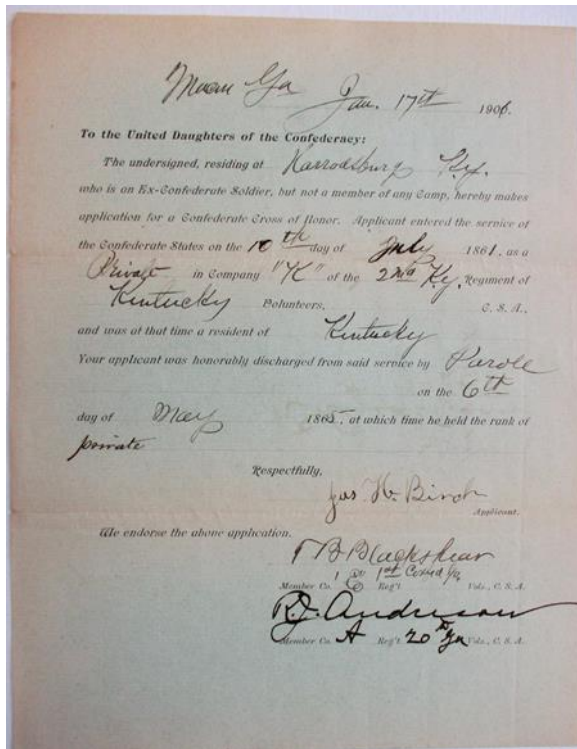 Macon Ga Jan. 17th 1906.
To the United Daughters of the Confederacy:
The undersigned, residing at Harrodsburg Ky.
who is an Ex-Confederate Soldier, but not a member of any Camp, hereby makes
application for a Confederate Cross of Honor. Applicant entered the service of
the Confederate States on the 10th day of July 1861, as a
Private in Company "K" of the 2nd Ky. Regiment of
Kentucky Volunteers, C. S. A.,
and was at that time a resident of Kentucky
Your applicant was honorably discharged from said service by Parole
on the 6th
day of May 1865, at which time he held the rank of
private
Respectfully,
Jas H. Birch
Applicant.
We endorse the above application.
T B Blackshear
Member Co. E Reg't 1st Vols., C. S. A.
R. J. Anderson
Member Co. A Reg't 20th Ga Vols., C. S. A.